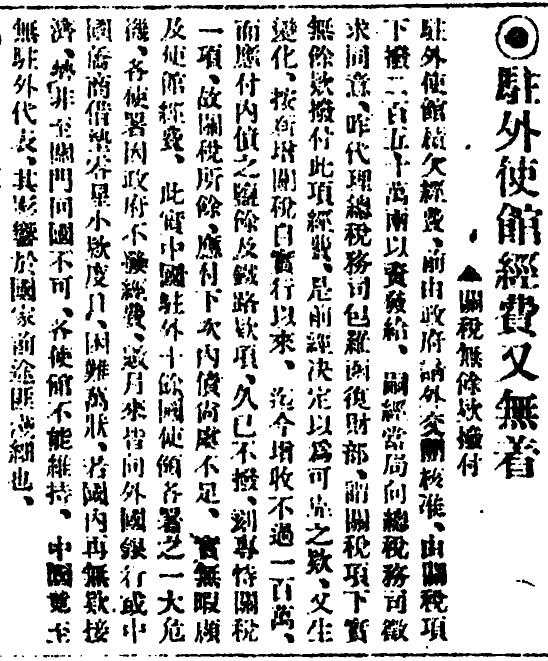 駐外使館經費又無着
▲關稅無餘欵撥付
駐外使館積欠經費、前由政府請外交團核准、由關稅項
下撥二百五十萬兩以資發給、嗣經當局向總稅務司徵
求同意、昨代理總稅務司包羅函復財部、謂關稅項下實
無餘欵撥付此項經費、是前經決定以爲可靠之欵、又生
變化、按新增關稅自實行以來、迄今增收不過一百萬、
而應付內債之鹽餘及鐵路欵項、久已不撥、刻專恃關稅
一項、故關稅所餘、應付下次內債尙慮不足、實無暇顧
及使館經費、此實中國駐外十餘國使領各署之一大危
機、各使署因政府不發經費、數月來皆向外國銀行或中
國僑商借墊零星小欵度日、困難萬狀、若國內再無欵接
濟、勢非至關門回國不可、各使館不能維持、中國竟至
無駐外代表、其影響於國家前途匪淺細也、